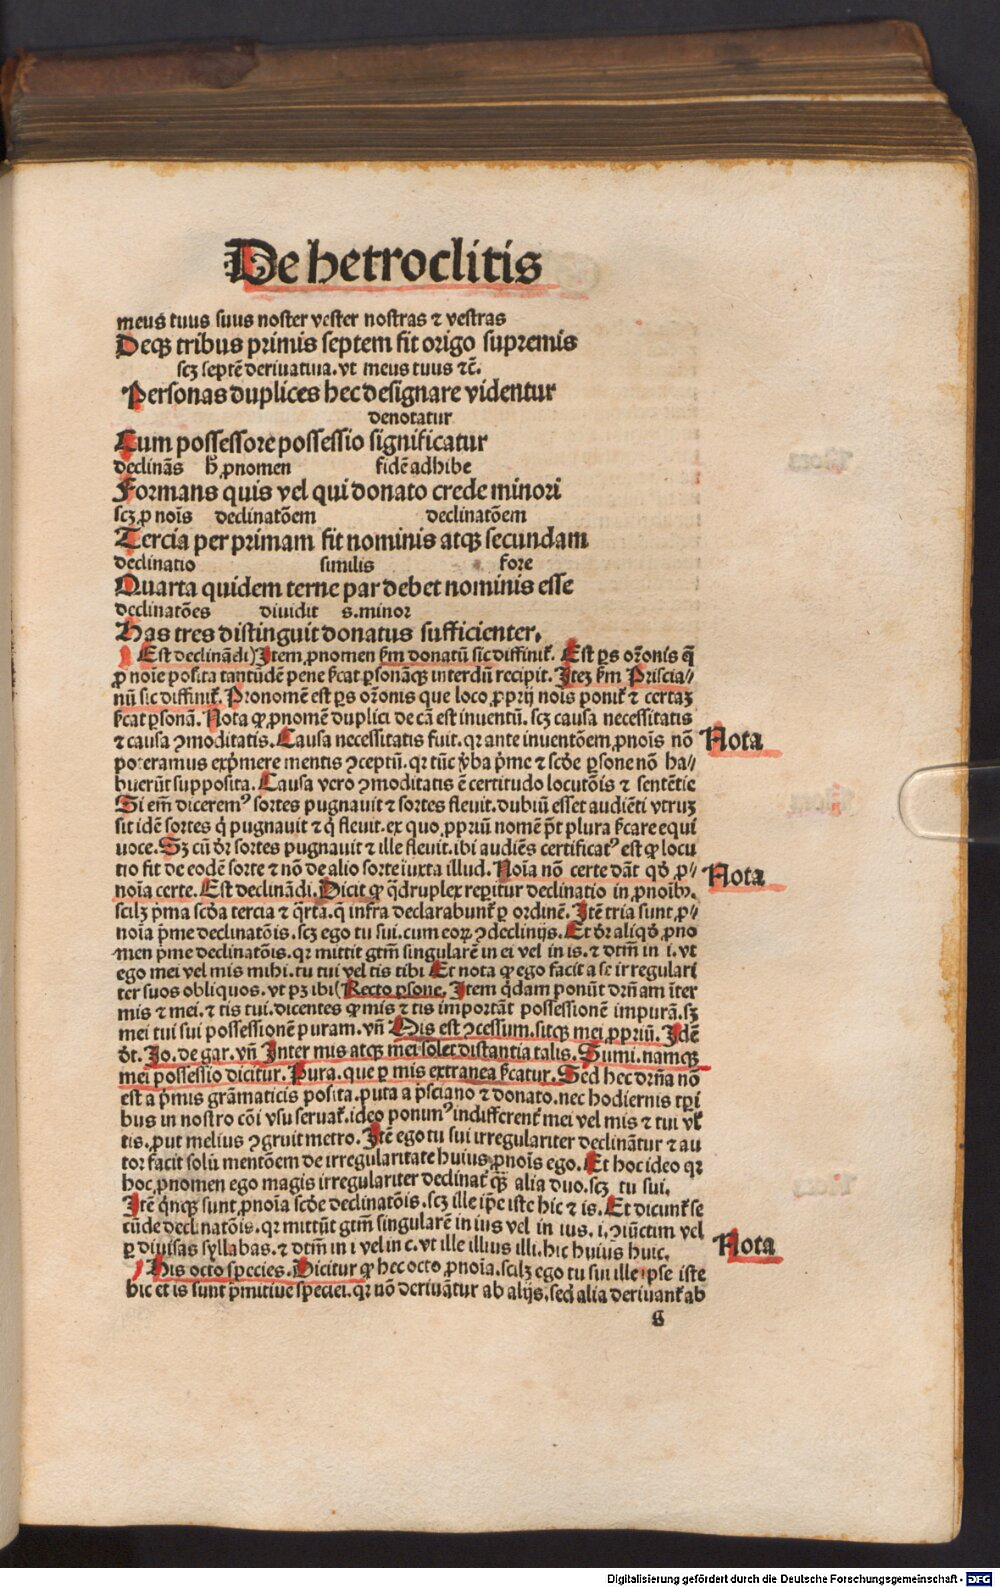 De hetroclitis
meus tuus suus noster vester nostras ⁊ vestras
Deqꝫ tribus primis septem fit origo supremis
scꝫ septē deriuatiua. vt meus tuus ⁊c̄.
Personas duplices hec designare videntur
denotatur
Cum possessore possessio significatur
declinās hꝰ ꝓnomen fidē adhibe
Formans quis vel qui donato crede minori
scꝫ ꝓ noīs declinatōem declinatōem
Tercia per primam fit nominis atqꝫ secundam
declinatio similis fore
Quarta quidem terne par debet nominis esse
declinatōes diuidit s. minor
Has tres distinguit donatus sufficienter.
Est declināndi) Item ꝓnomen ẜm donatū sic diffiniť. Est ꝑs orōnis q̄
ꝓ noīe posita tantūdē pene ẜcat ꝑsonāqꝫ interdū recipit. Iteꝫ ẜm Priscia⸗
nū sic diffiniť. Pronomē est ꝑs orōnis que loco ꝓprij noīs poniť ⁊ certaꝫ
ẜcat ꝑsonā. Nota ꝙ ꝓnomē duplici de cā est inuentū. scꝫ causa necessitatis
⁊ causa ꝯmoditatis. Causa necessitatis fuit. qꝛ ante inuentōem ꝓnoīs nō
Nota
poteramus exp̄mere mentis ꝯceptū. qꝛ tūc v̄ba p̄me ⁊ scd̄e ꝑsone nō ha⸗
buerūt supposita. Causa vero ꝯmoditatis ē certitudo locutōis ⁊ sentētie
Si em̄ diceremꝰ sortes pugnauit ⁊ sortes fleuit. dubiū esset audiēti vtruꝫ
sit idē sortes q̇ pugnauit ⁊ q̇ fleuit. ex quo ꝓpriū nomē p̄t plura ẜcare equi
uoce. Sꝫ cū dr̄ sortes pugnauit ⁊ ille fleuit. ibi audiēs certificatꝰ est ꝙ locu
tio fit de eodē sorte ⁊ nō de alio sorte iuxta illud. Noīa nō certe dāt qd̄ ꝓ⸗
Nota
noīa certe. Est declinādi. Dicit ꝙ q̈druplex reꝑitur declinatio in ꝓnoībꝫ.
scilꝫ p̄ma scd̄a tercia ⁊ q̈rta. q̄ infra declarabunť ꝑ ordinē. Itē tria sunt ꝓ⸗
noīa p̄me declinatōis. scꝫ ego tu sui. cum eoꝝ ꝯdeclinijs. Et dr̄ aliqd̄ ꝓno
men p̄me declinatōis. qꝛ mittit gtm̄ singularē in ei vel in is. ⁊ dtm̄ in i. vt
ego mei vel mis mihi. tu tui vel tis tibi Et nota ꝙ ego facit a se irregulari
ter suos obliquos. vt pꝫ ibi (Recto ꝑsone. Item q̇dam ponūt dr̄nam īter
mis ⁊ mei. ⁊ tis tui. dicentes ꝙ mis ⁊ tis importāt possessionē impurā. sꝫ
mei tui sui possessionē puram. vn̄ Mis est ꝯcessum. sitqꝫ mei ꝓpriū. Idē
dt̄. Io. de gar. vn̄ Inter mis atqꝫ mei solet distantia talis. Sumi. namqꝫ
mei possessio dicitur. Pura. que ꝑ mis extranea ẜcatur. Sed hec dr̄na nō
est a p̄mis grāmaticis posita. puta a p̄sciano ⁊ donato. nec hodiernis tꝑi
bus in nostro cōi vsu seruať. ideo ponimꝰ indifferenť mei vel mis ⁊ tui vľ
tis. ꝓut melius ꝯgruit metro. Itē ego tu sui irregulariter declināntur ⁊ au
tor facit solū mentōem de irregularitate huius ꝓnoīs ego. Et hoc ideo qꝛ
hoc ꝓnomen ego magis irregulariter declinať qꝫ alia duo. scꝫ tu sui.
Itē q̇nqꝫ sunt ꝓnoīa scd̄e declinatōis. scꝫ ille ip̄e iste hic ⁊ is. Et dicunť se
cūde declinatōis. qꝛ mittūt gtm̄ singularē in ius vel in ius. i. ꝯiūctim vel
ꝑ diuisas syllabas. ⁊ dtm̄ in i vel in c. vt ille illius illi. hic huius huic.
Nota
His octo species. Dicitur ꝙ hec octo ꝓnoīa. scilꝫ ego tu sui ille ipse iste
hic et is sunt p̄mitiue speciei. qꝛ nō deriuātur ab alijs. sed alia deriuanť ab
s
Digitalisierung gefördert durch die Deutsche Forschungsgemeinschaft - DFG